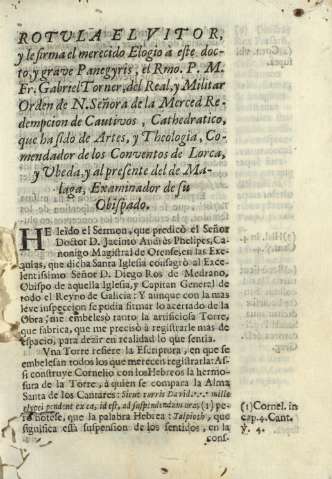 ROTULA EL VITOR,
y le firma el merecido Elogio à este doc-
to, y grave Panegyris, el Rmo. P. M.
Fr. Gabriel Torner, del Real, y Militar
Orden de N. Señora de la Merced Re-
dempcion de Cautivos, Cathedratico,
que ha sido de Artes, y Theologia, Co-
mendador de los Conventos de Lorca,
y Vbeda, y al presente del de Ma-
laga, Examinador de su
Obispado.
HE leìdo el Sermon, que predicò el Señor
Doctor D. Jacinto Andrès Phelipes, Ca-
nonigo Magistral de Orense, en las Exe-
quias, que dicha Santa Iglesia consagrò al Exce-
lentissimo Señor D. Diego Ros de Medrano,
Obispo de aquella Iglesia, y Capitan General de
todo el Reyno de Galicia: Y aunque con la mas
leve inspeccion se podia firmar lo acertado de la
Obra; me embelesò tanto la artificiosa Torre,
que fabrica, que me precisò à registrarle mas de
espacio, para dezir en realidad lo que sentia.
Vna Torre refiere la Escriptura, en que se
embelesan todos los que merecen registrarla: As-
si construye Cornelio con los Hebreos la hermo-
sura de la Torre, à quien se compara la Alma
Santa de los Cantares: Sicut turris David: mille
clypei pendent ex ea, id est, ad suspendendum ora; (1) pe-
ro notese, que la palabra Hebrea: Talpioth, que
significa està suspension de los sentidos, en la
cons-
(1) Cornel. in
cap. 4. Cant.
℣. 4.